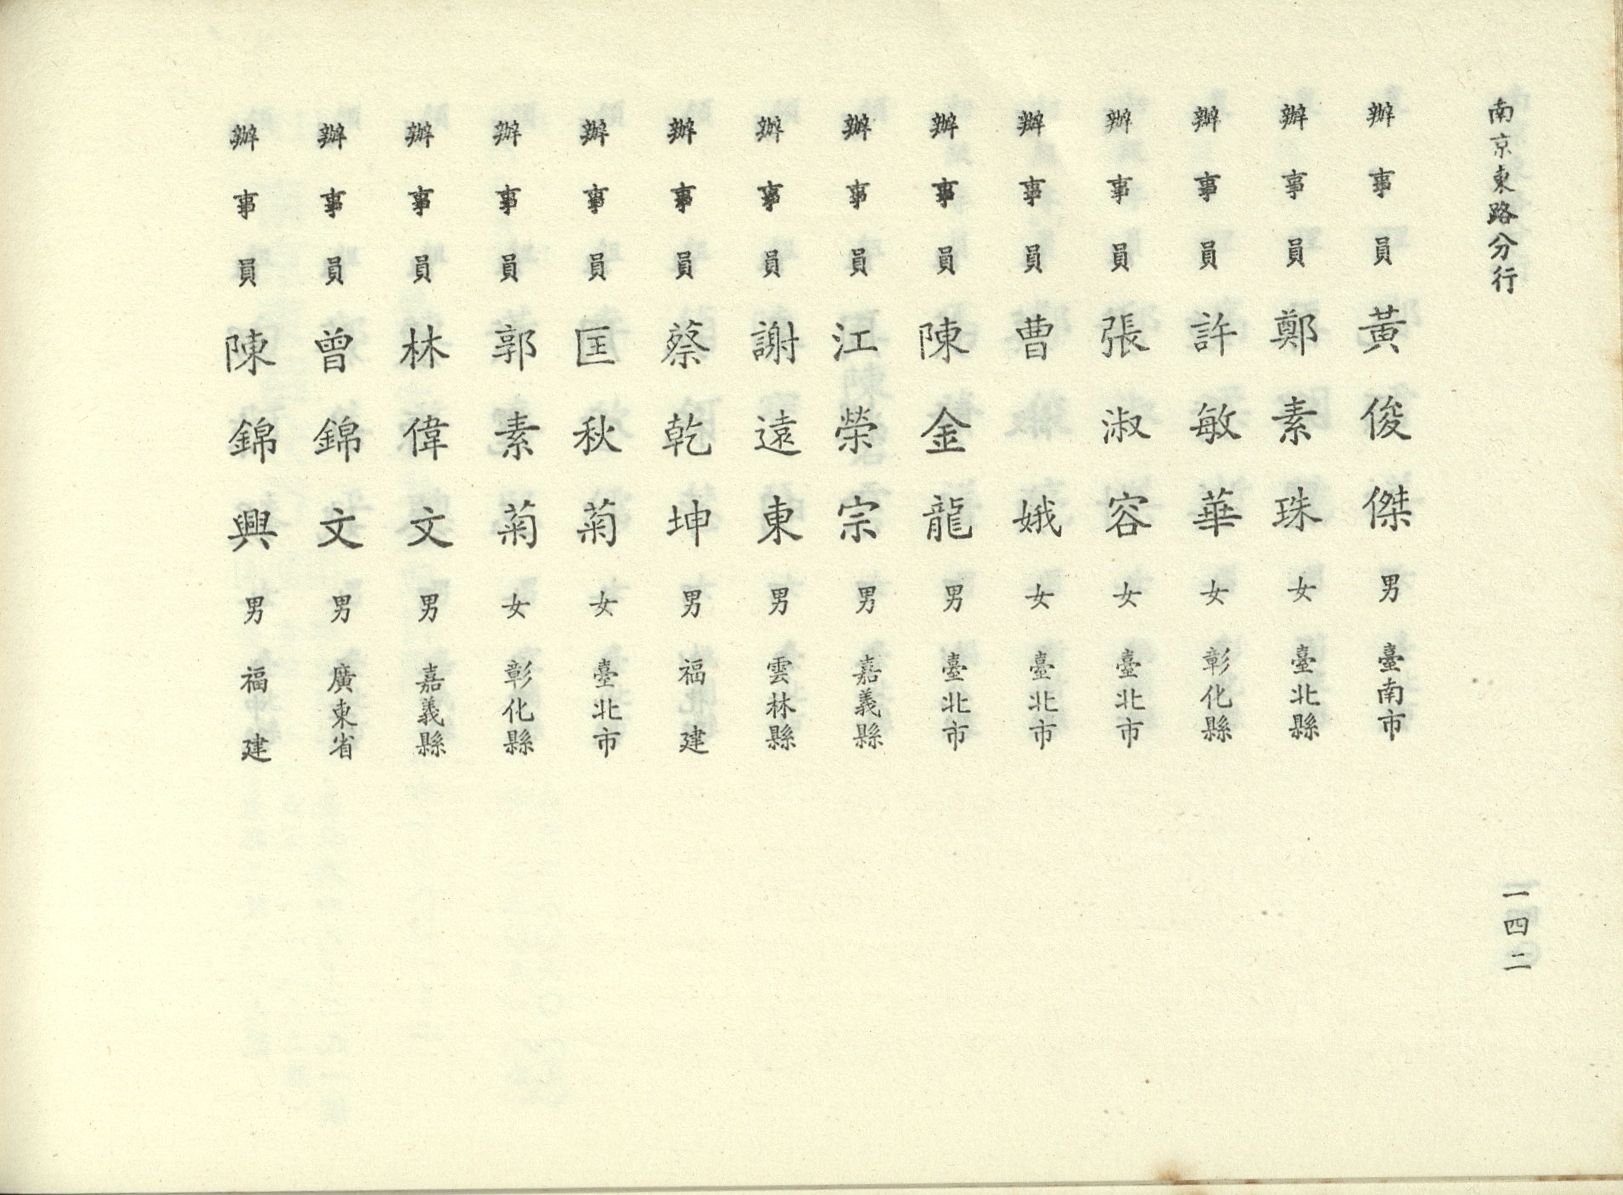 南京東路分行
一四二
辦事員 黃俊傑 男 臺南市
辦事員 鄭素珠 女 臺北縣
辦事員 許敏華 女 彰化縣
辦事員 張淑容 女 臺北市
辦事員 曹娥 女 臺北市
辦事員 陳金龍 男 臺北市
辦事員 江榮宗 男 嘉義縣
辦事員 謝遠東 男 雲林縣
辦事員 蔡乾坤 男 福建
辦事員 匡秋菊 女 臺北市
辦事員 郭素菊 女 彰化縣
辦事員 林偉文 男 嘉義縣
辦事員 曾錦文 男 廣東省
辦事員 陳錦興 男 福建